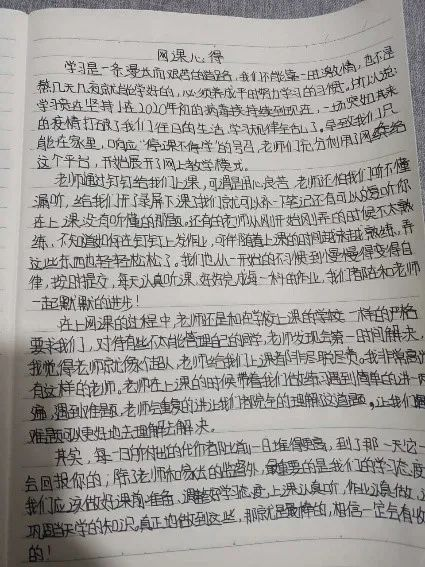 网课心得
学习是一条漫长而艰苦的道路，我们不能靠一时激情，也不是
熬几天几夜就能学好的，必须养成平时努力学习的习惯。所以说：
学习贵在坚持！在2020年初的病毒持续到现在，一场突如其来
的疫情打破了我们往日的生活，学习规律全乱了。导致我们只
能在家里，响应“停课不停学”的号召，老师们充分利用了网络
这个平台，开始展开了网上教学模式。
老师通过钉钉给我们上课，可谓是用心良苦，老师还怕我们听不懂
漏听，给我们开了录屏下课了我们就可以补一下笔记还有可以反复听
在上课没有听懂的那题。还有的老师从刚开始的时候不太熟
练，不知道如何在钉钉上发作业，可伴随着上课的时间越来越熟练，弄
这些东西也轻轻松松了。我们也从一开始的不习惯到慢慢得变得自
律，按时提交，每天认真听课，好好完成每一科的作业，我们都在和老师
一起默默的进步！
在上网课的过程中，老师还是和在学校上课的学校一样的严格
要求我们，对待有些不太能管理自己的同学，老师发现会第一时间解决，
我觉得老师就像个超人，老师给我们上课都非尽职尽责。我非常高兴
有这样的老师。老师在上课的时候带着我们做练习遇到简单的讲一两
遍，遇到难题，老师会重复的讲让我们都完全的理解这道题。让我们
难题可以更好地去理解去解决。
其实，每一日所付出的代价都比前一日堆得更高，到了那一天它
会回报你的；除了老师和家长的监督外，最重要的是我们的学习态度
我们应该做好课前准备，调整好学习态度，上课认真听，作业认真做，
巩固当天学的知识。真正地做到这些，那就是最棒的，相信一定会有收
的！